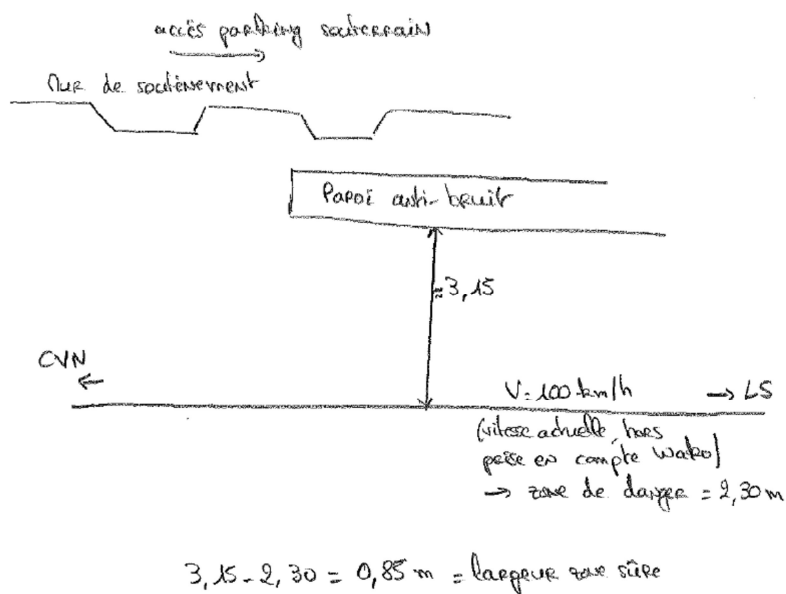 accès parking souterrain
Mur de soutènement
Paroi anti-bruit
≈ 3,15
CVN
V = 100 km/h
→ LS
(vitesse actuelle, hors
prise en compte Wako)
→ zone de danger = 2,30 m
3,15 - 2,30 = 0,85 m = largeur zone sûre